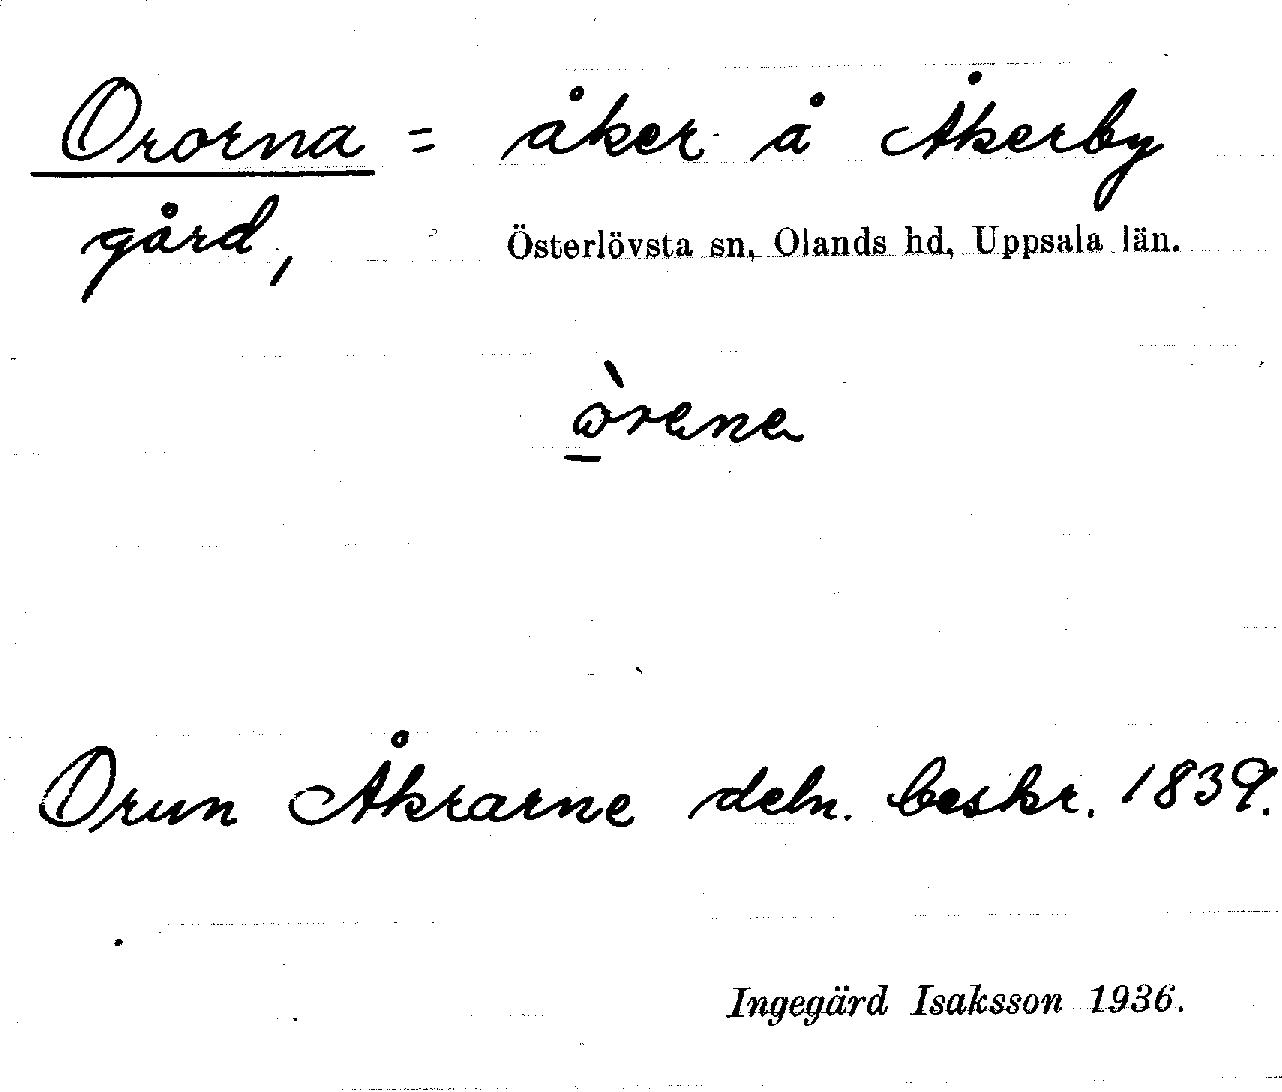 Ororna = åker å Åkerby
gård, Österlövsta sn, Olands hd, Uppsala län.
ò̱rene
Orun Åkrarne deln. beskr. 1839.
Ingegärd Isaksson 1936.